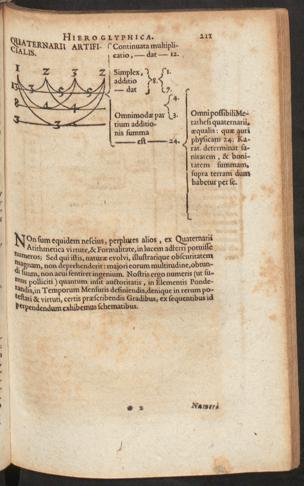 HIEROGLYPHICA. 211
QUATERNARII ARTIFI-
CIALIS.
Continuata multipli-
catio, — dat — 12.
1 2 3 2
Simplex,
additio
— dat
1.
7.
8
3 3
Omnimodæ par
tium additio-
nis summa
— est — 24.
4.
3.
Omni possibili Me-
tathesi quaternarii,
æqualis: quæ auri
physicam 24. Ka-
rat. determinat sa-
nitatem, & boni-
tatem summam,
supra terram dum
habetur per se.
NOn sum equidem nescius, perplures alios, ex Quaternarii
Arithmetica virtute, & Formalitate, in lucem adferri potuisse
numeros; Sed qui istis, naturæ evolvi, illustrarique obscuritatem
magnam, non deprehenderit: majori eorum multitudine, obtun-
di suum, non acui sentiret ingenium. Nostris ergo numeris (ut su-
mus polliciti) quantum insit auctoritatis, in Elementis Ponde-
randis, in Temporum Mensuris definiendis, denique in rerum po-
testati & virtuti, certis præscribendis Gradibus, ex sequentibus id
perpendendum exhibemus schematibus.
2
Numeri